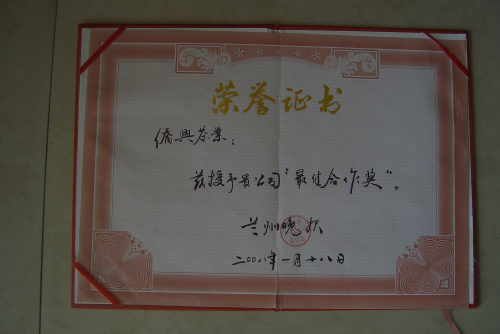 荣誉证书
侨興茶業：
兹授予贵公司“最佳合作奖”。
兰州晚报
二00八年一月十八日